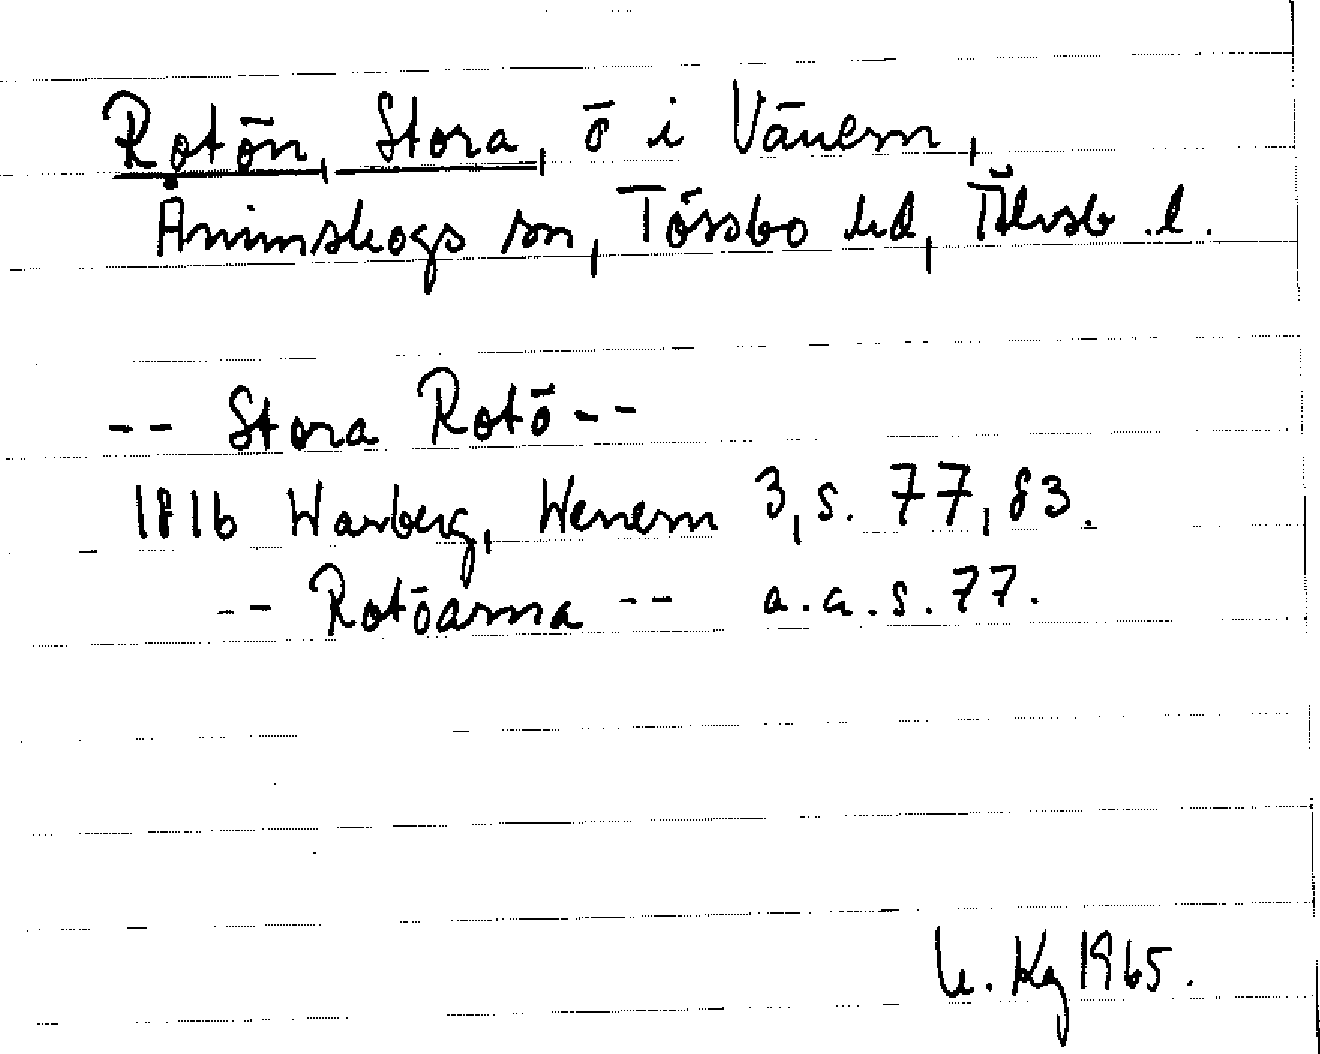 Rotön, Stora, ö i Vänern,
Ånimskogs sn, Tössbo hd, Älvsb. l.
-- Stora Rotö --
1816 Warberg, Wenern 3, s. 77, 83.
-- Rotöarna -- a.a. s. 77.
Kg 1965.